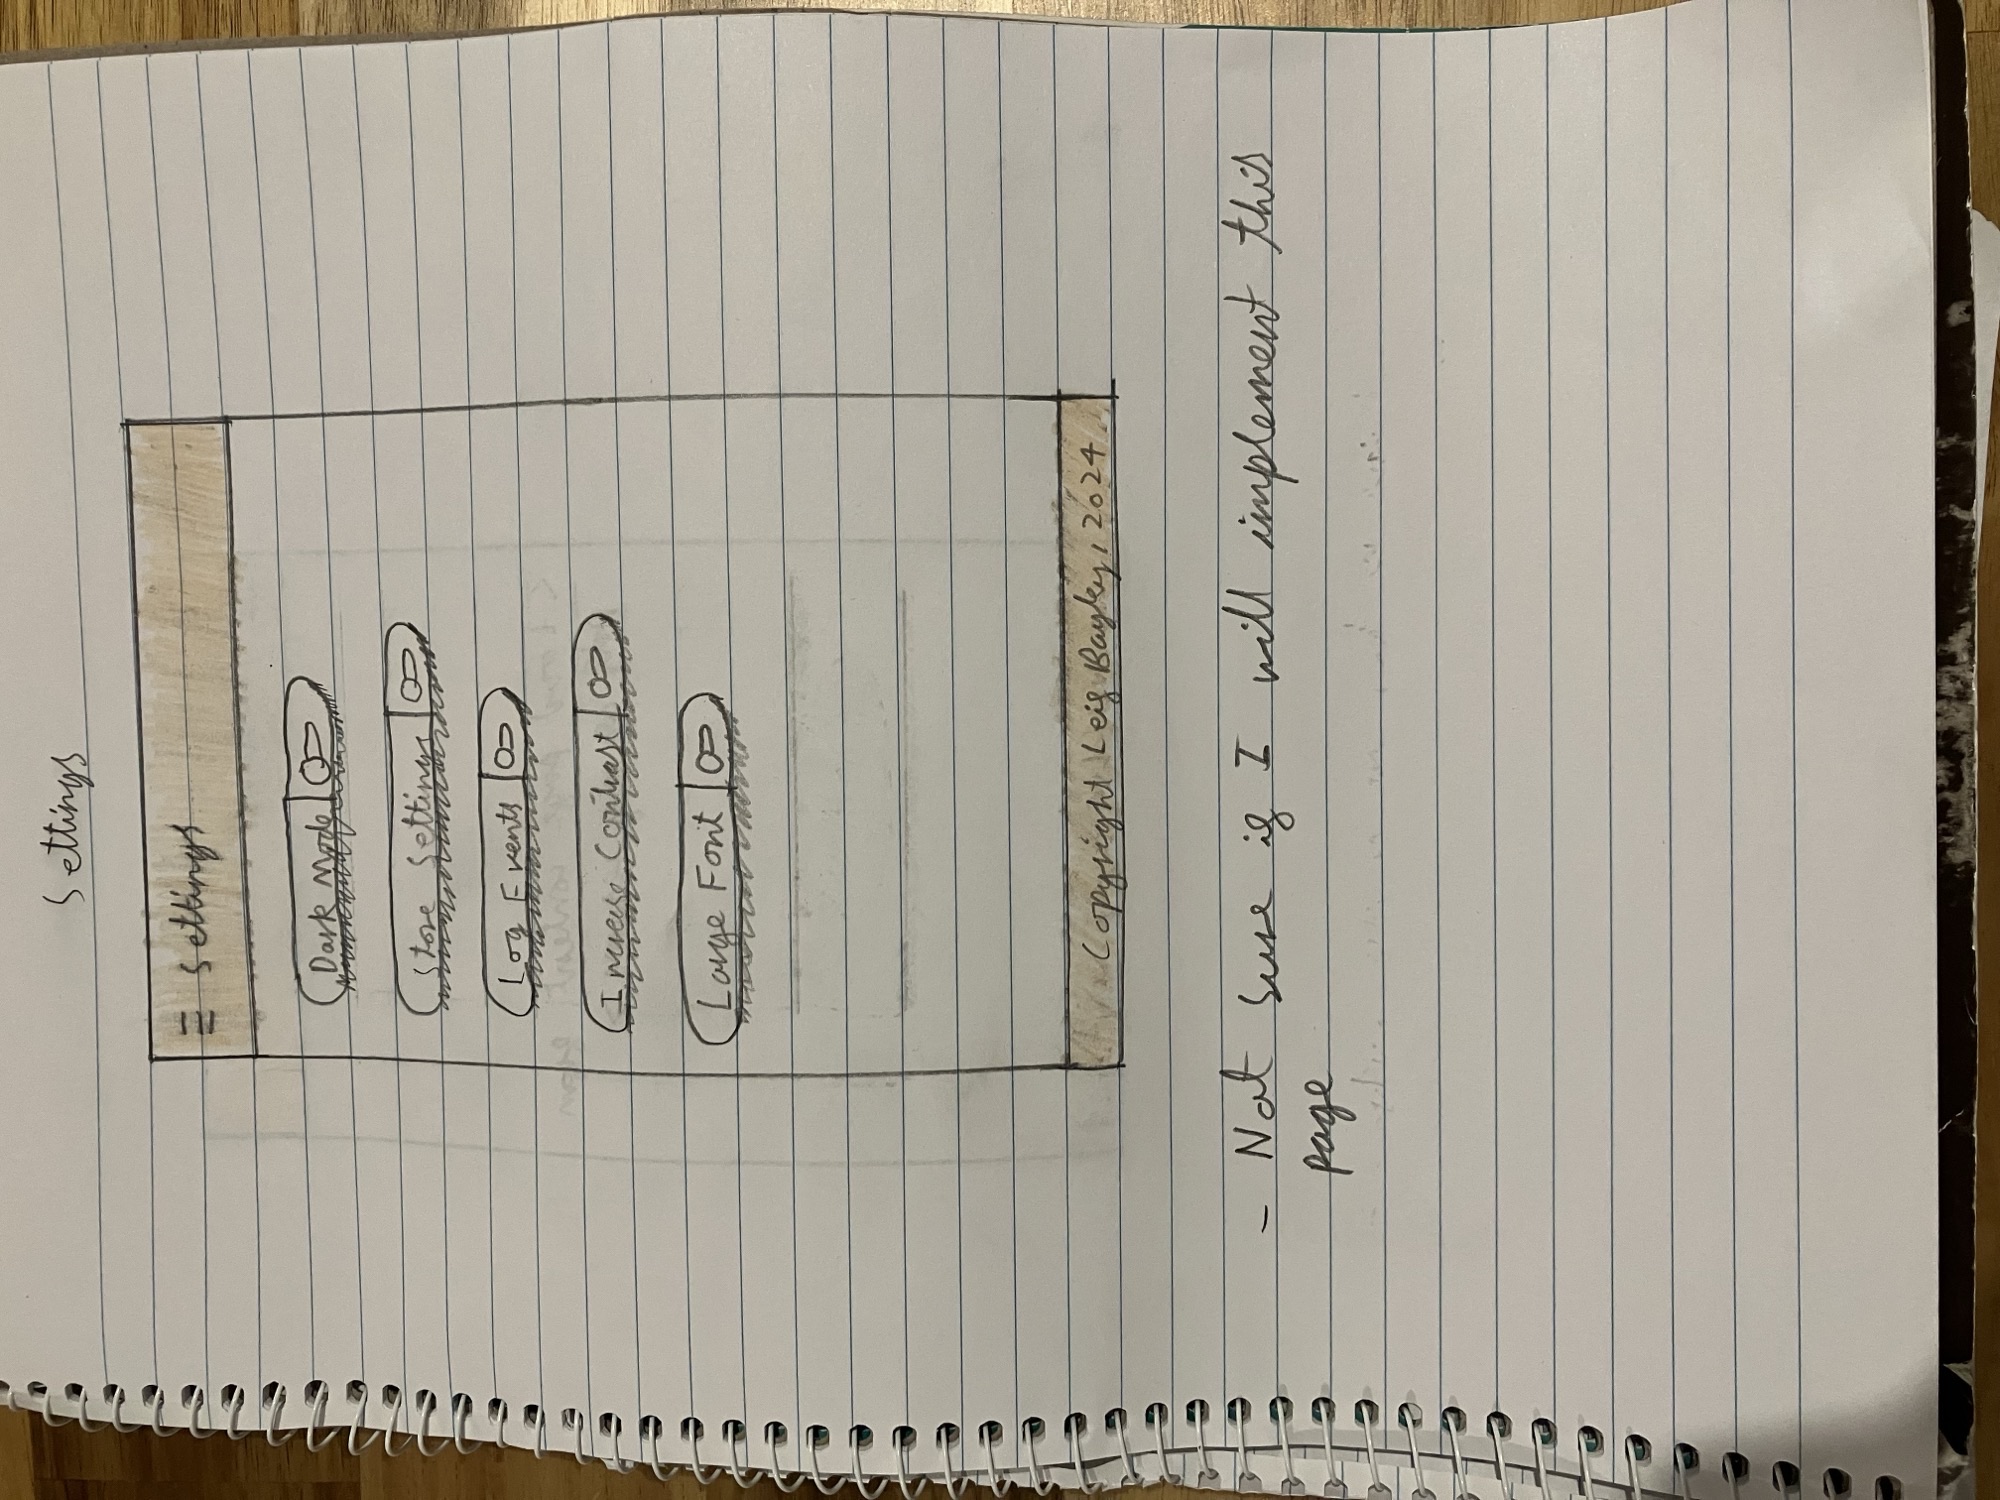 Settings
Settings
Dark Mode
Store Settings
Log Events
Increase Contrast
Large Font
Copyright Leif Bayley, 2024
- Not sure if I will implement this
page